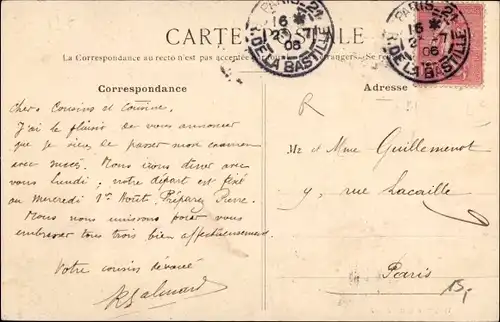 CARTE POSTALE
La Correspondance au recto n'est pas acceptée
Correspondance
Adresse
PARIS
16 *
23 -7
06
R. DE LA BASTILLE
PARIS
16 *
06
R. DE LA BASTILLE
Chers Cousins et Cousine,
J'ai le plaisir de vous annoncer
que je viens de passer mon examen
avec succès. Nous irons dîner avec
vous lundi, notre départ est fixé
au mercredi 1er Août, Préparez Pierre.
Nous nous unissons pour vous
embrasser tous trois bien affectueusement.
Votre cousin dévoué
R
Mr et Mme Guillemenot
9, rue Lacaille
Paris
15,